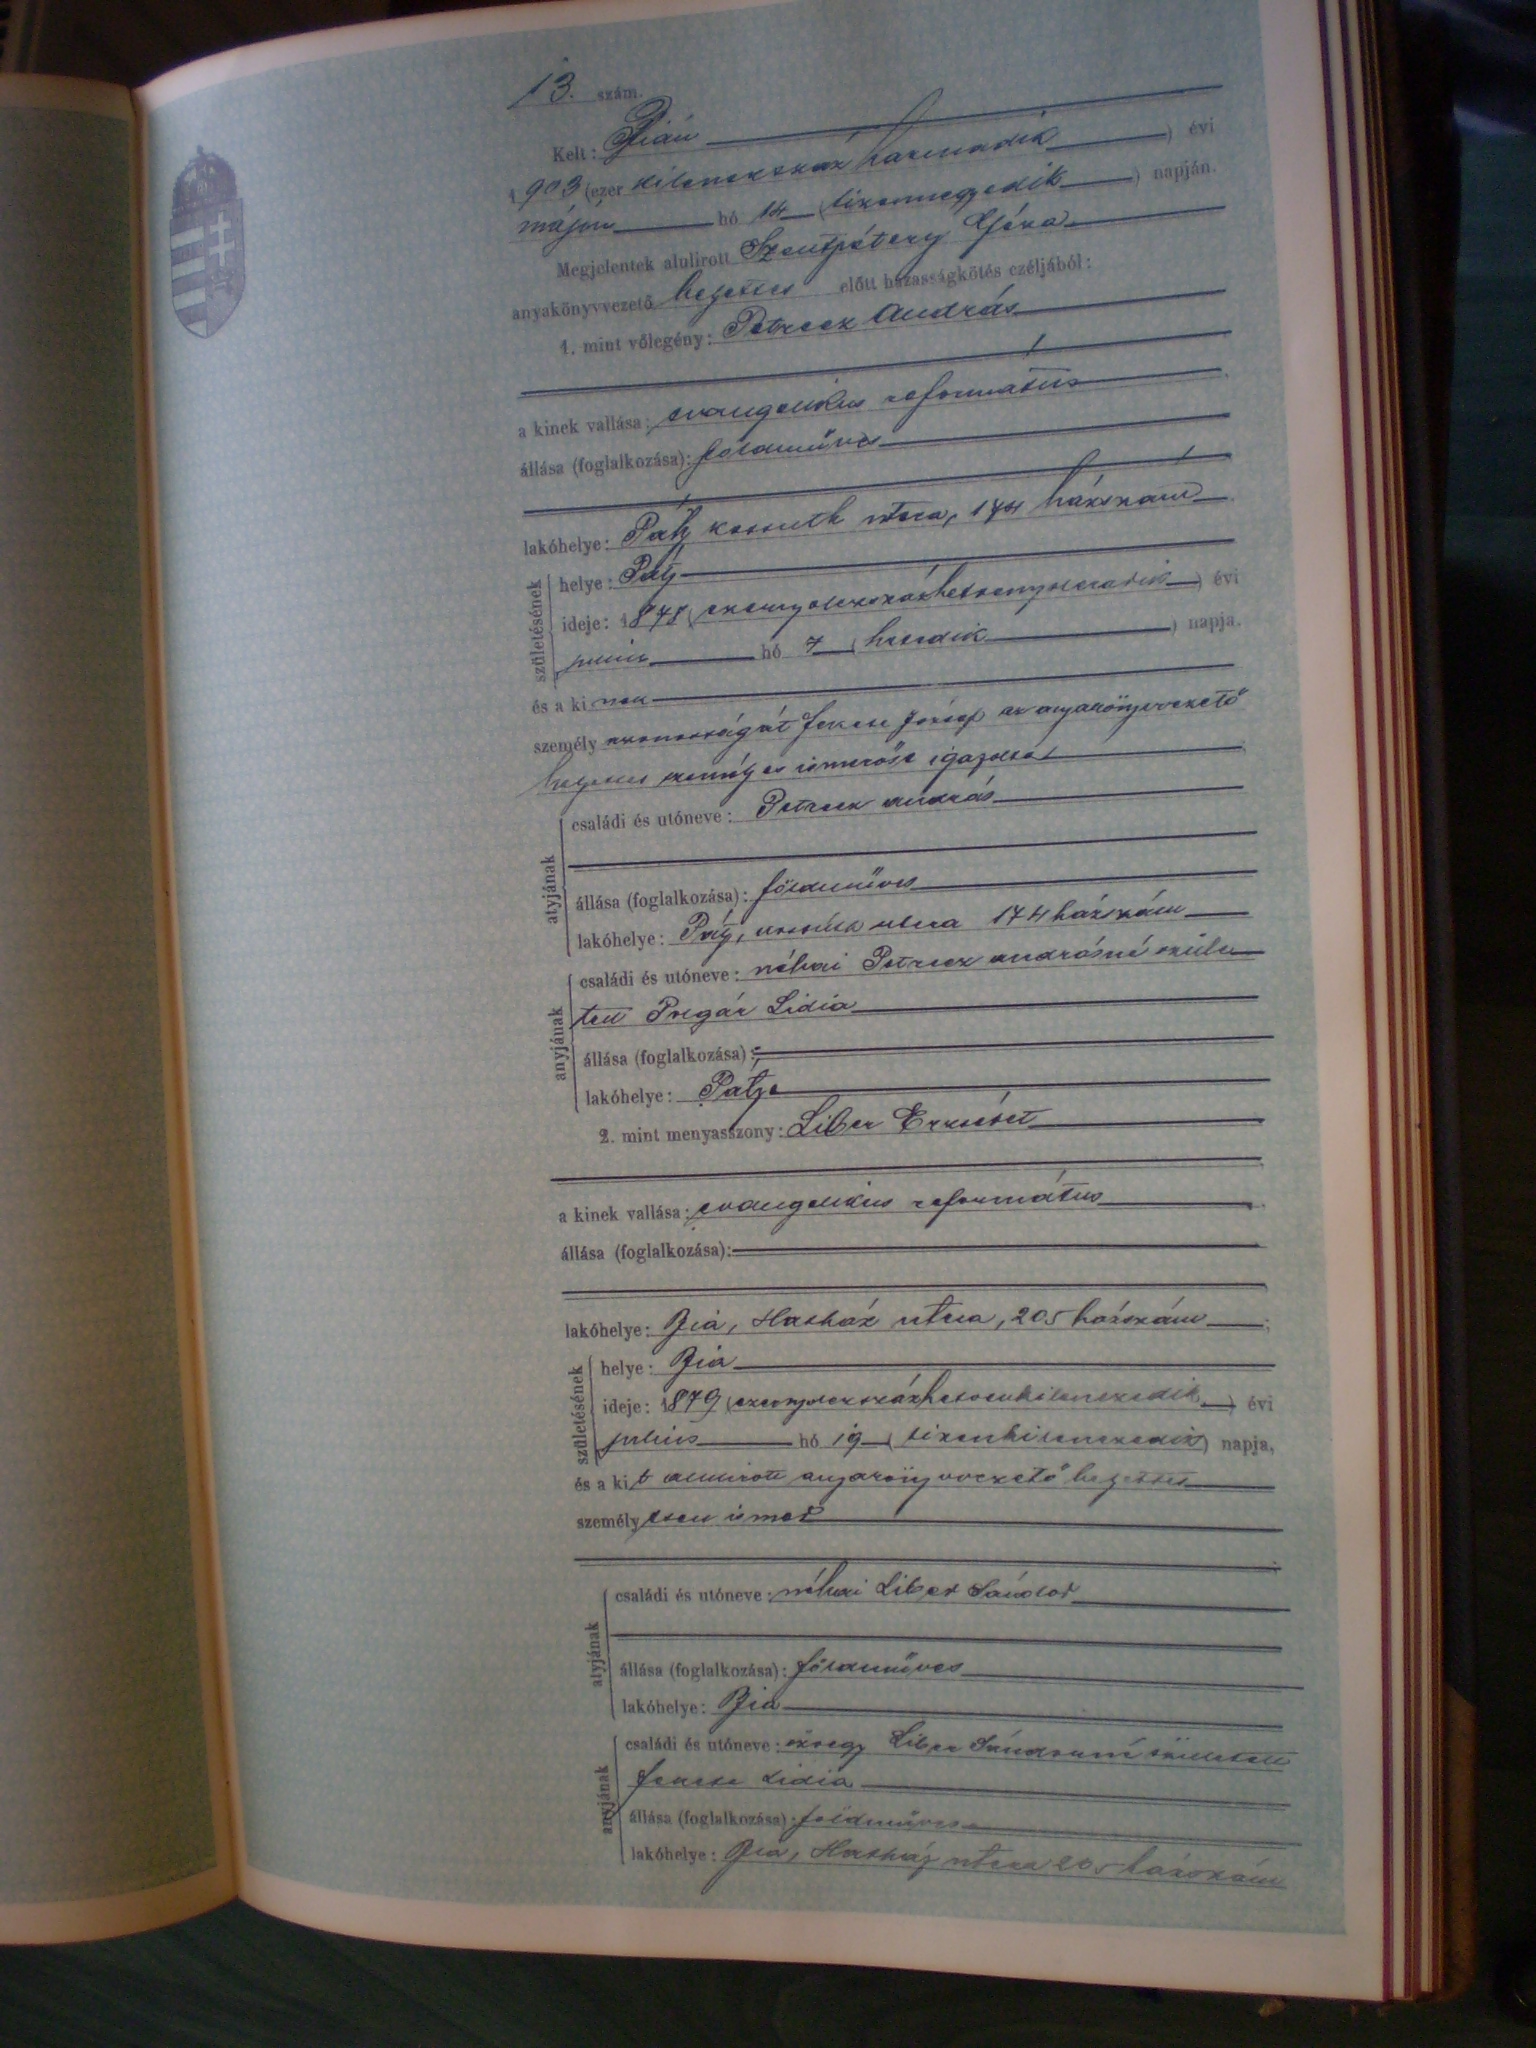 13. szám.
Kelt: Bián
1903 (ezer kilenczszáz harmadik) évi
május hó 14 (tizennegyedik) napján.
Megjelentek alulirott Szentpétery Géza
anyakönyvvezető helyettes előtt házasságkötés czéljából:
1. mint vőlegény: Petrecz András
a kinek vallása: evangelikus református
állása (foglalkozása): földműves
lakóhelye: Páty kossuth utcza, 174 házszám
születésének
helye: Páty
ideje: 1878 (ezernyolczszázhetvennyolczadik) évi
hó 7 (hetedik) napja.
és a ki nek
személy azonosságát fekete József az anyakönyvvezető
helyettes személyes ismerőse igazolta
atyjának
családi és utóneve: Petrecz andrás
állása (foglalkozása): földműves
lakóhelye: Páty, kossuth utcza 174 házszám
anyjának
családi és utóneve: néhai Petrecz andrásné szüle
tett Lidia
állása (foglalkozása):
lakóhelye:
2. mint menyasszony: Liber Erzsébet
a kinek vallása: evangelikus református
állása (foglalkozása):
lakóhelye: Bia, utcza, 205 házszám
születésének
helye: Bia
ideje: 1879 (ezernyolczszázhetvenkilenczedik) évi
julius hó 19 (tizenkilenczedik) napja,
és a ki t alulirott anyakönyvvezető helyettes
személy esen ismer
atyjának
családi és utóneve: néhai Liber Sándor
állása (foglalkozása): földműves
lakóhelye: Bia
anyjának
családi és utóneve: özvegy Liber Sándorné született
fekete Lidia
állása (foglalkozása): földműves
lakóhelye: Bia, utcza 205 házszám